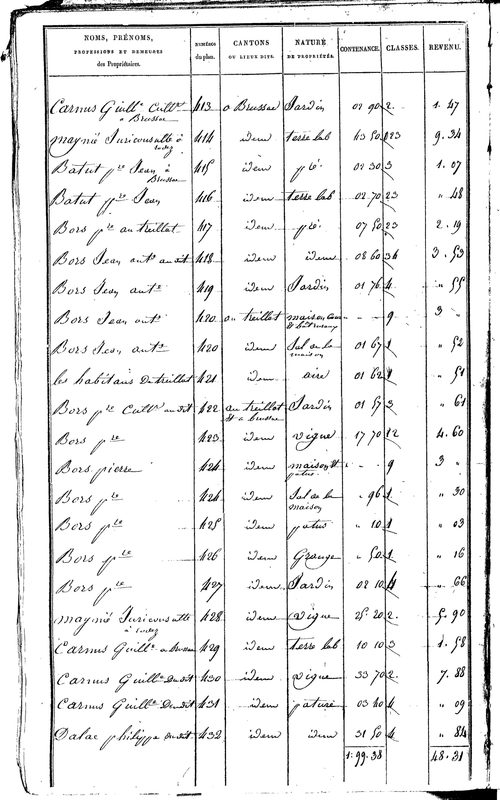 NOMS, PRÉNOMS, PROFESSIONS ET DEMEURES des Propriétaires. NUMÉROS du plan. CANTONS OU LIEUX DITS. NATURE DE PROPRIÉTÉS. CONTENANCE. CLASSES. REVENU.
Carnus Guill.e Cult.r à Brussac 413 à Brussac Jardin 02 90 2 1. 47
maynié Juriconsulte à rodez 414 idem terre lab 43 50 123 9. 34
Batut p.re Jean à Brussac 415 idem pré 02 30 3 1. 07
Batut p.re Jean 416 idem terre lab 02 70 23 " 48
Bors p.re au treillot 417 idem pré 07 50 23 2. 19
Bors Jean ant.e au dit 418 idem idem 08 60 34 3. 53
Bors Jean ant.e 419 idem Jardin 01 76 4 " 55
Bors Jean ant.e 420 au treillot maison 9 3 "
Bors Jean ant.e 420 idem Sol de la maison 01 67 1 " 52
les habitans du treillot 421 idem aire 01 62 1 " 51
Bors p.re Cult.r au dit 422 au treillot et à brussac Jardin 01 57 3 " 61
Bors p.re 423 idem vigne 17 70 12 4. 60
Bors pierre 424 idem maison et patus 9 3 "
Bors p.re 424 idem Sol de la maison " 96 1 " 30
Bors p.re 425 idem patus " 10 1 " 03
Bors p.re 426 idem Grange " 50 1 " 16
Bors p.re 427 idem Jardin 02 10 4 " 66
maynié Juriconsulte à rodez 428 idem vigne 25 20 2 5. 90
Carnus Guill.e à Brussac 429 idem terre lab 10 10 3 1. 58
Carnus Guill.e du dit 430 idem vigne 33 70 2 7. 88
Carnus Guill.e du dit 431 idem pature 03 40 4 " 09
Dalac philippe du dit 432 idem idem 31 50 4 " 84
1. 99. 38 48. 31